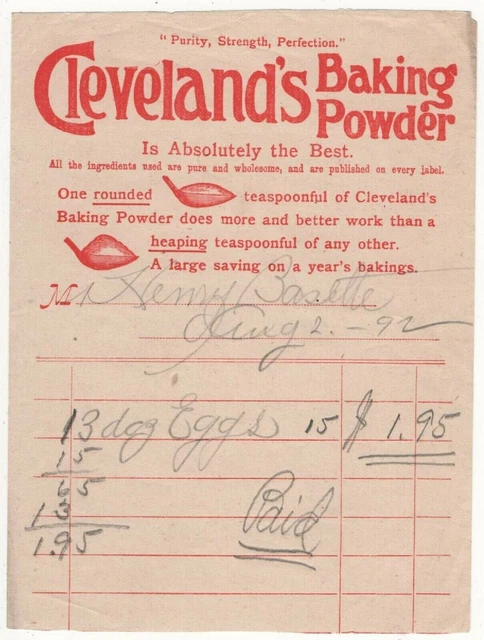 " Purity, Strength, Perfection."
Cleveland's Baking Powder
Is Absolutely the Best.
All the ingredients used are pure and wholesome, and are published on every label.
One rounded teaspoonful of Cleveland's
Baking Powder does more and better work than a
heaping teaspoonful of any other.
A large saving on a year's bakings.
Mr Henry Basette
Aug 2. - 92
13 doz Eggs 15 $ 1.95
15
65
13
1.95
Paid